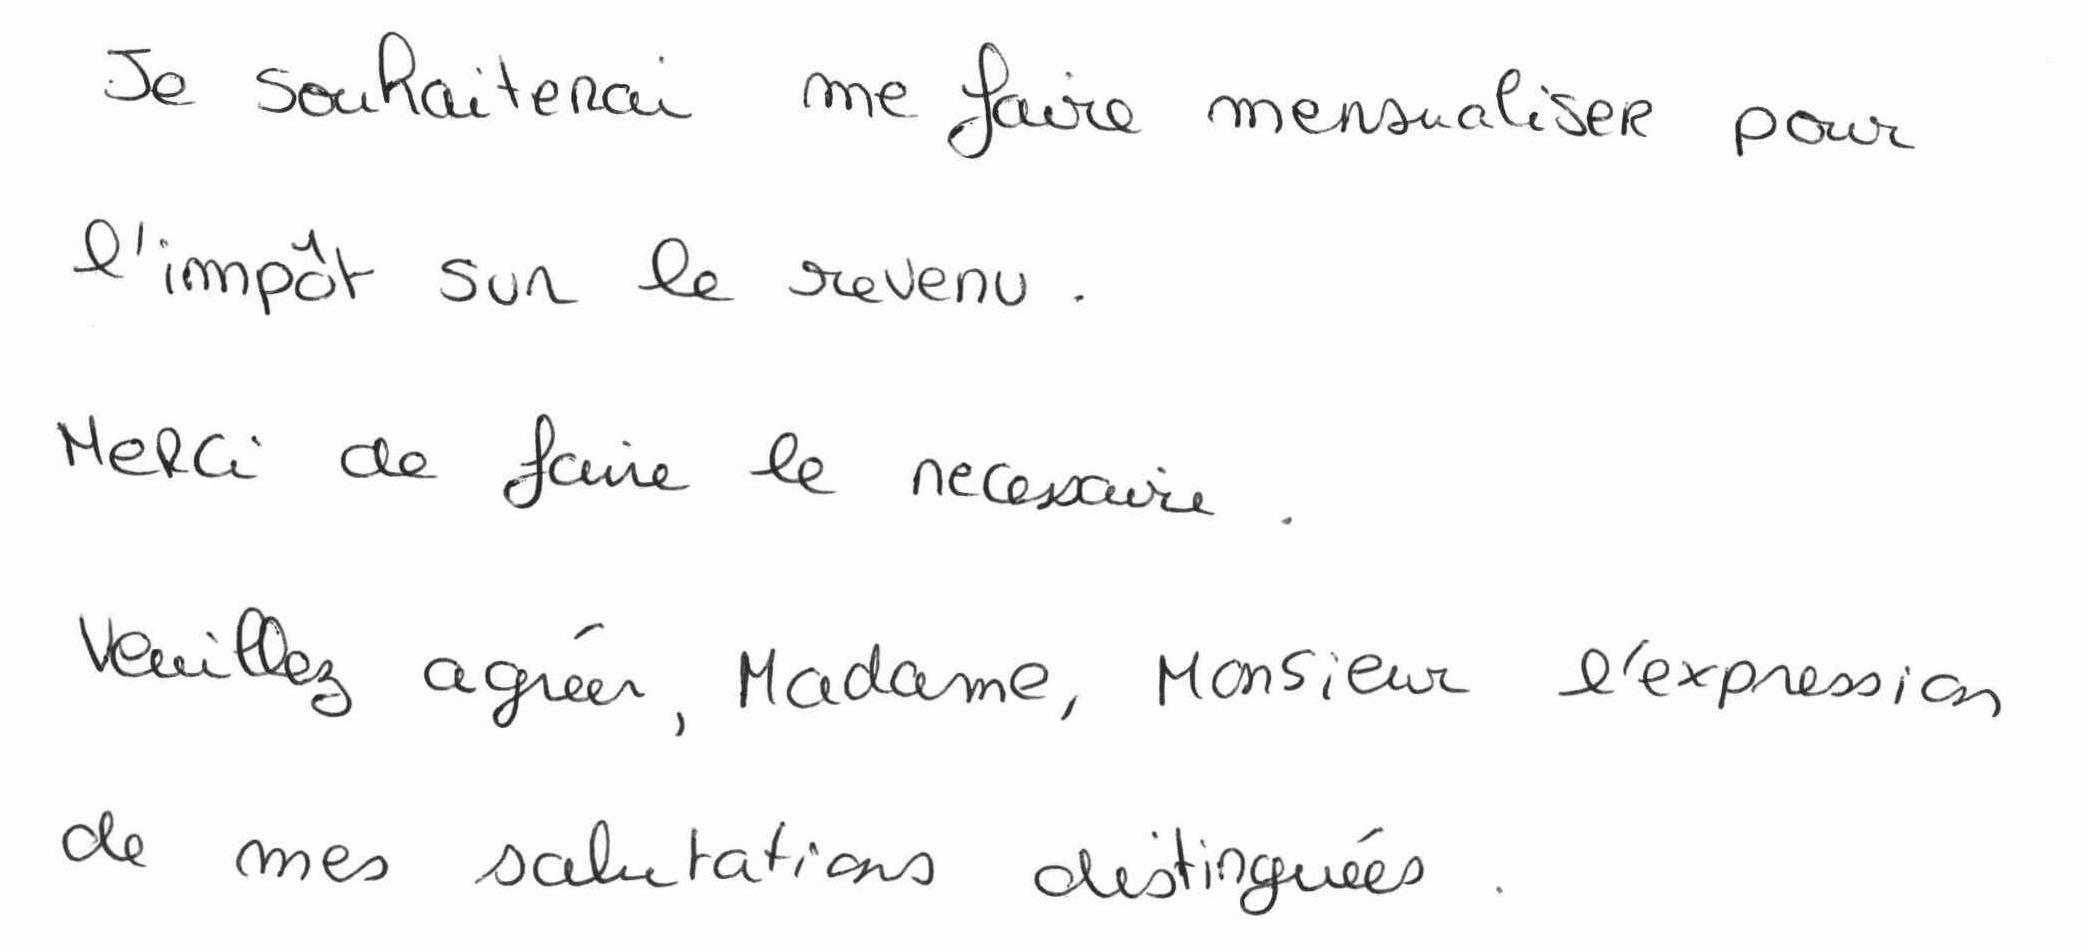 Je souhaiterai me faire mensualiser pour
l'impôt sur le revenu.
Merci de faire le necessaire.
Veuillez agréer, Madame, Monsieur l'expression
de mes salutations distinguées.